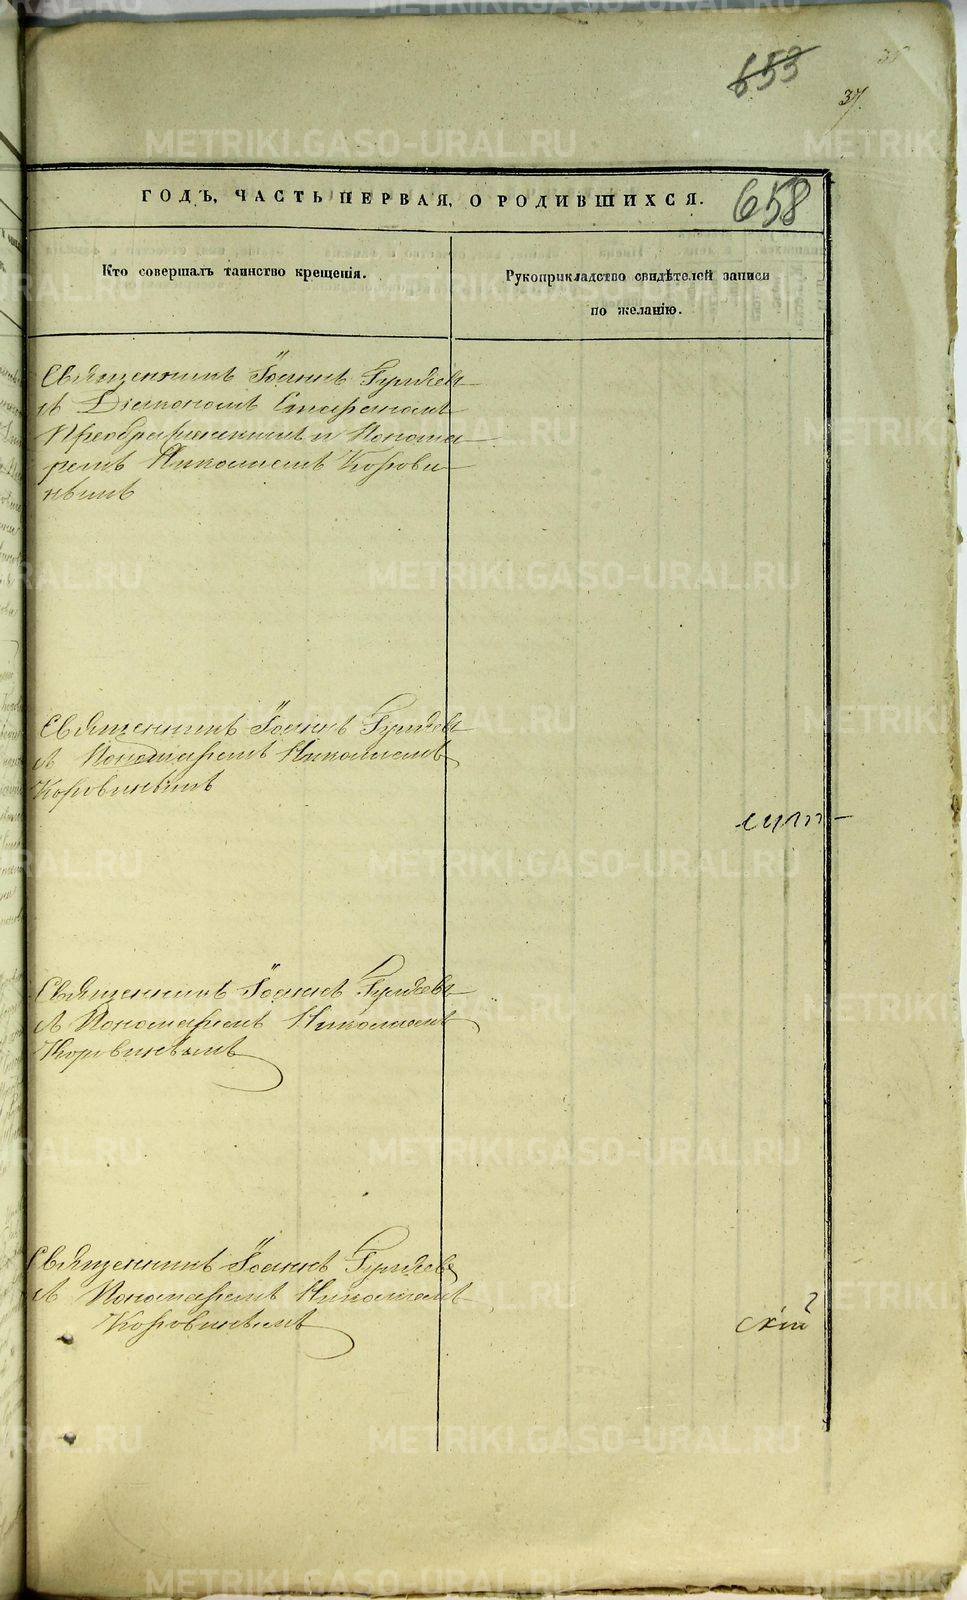 653
37.
ГОДЪ, ЧАСТЬ ПЕРВАЯ, О РОДИВШИХСЯ.
658
Кто совершалъ таинство крещенія.
Рукоприкладство свидѣтелей записи
по желанію.
Священникъ Іоаннъ Гуляевъ
съ Діакономъ Стефаномъ
Преображенскимъ и Понома
ремъ Николаемъ Корови
нымъ
Священникъ Іоаннъ Гуляевъ
съ Пономаремъ Николаемъ
Коровинымъ
Священникъ Іоаннъ Гуляевъ
съ Пономаремъ Николаемъ
Коровинымъ
Священникъ Іоаннъ Гуляевъ
съ Пономаремъ Николаемъ
Коровинымъ
скій
METRIKI.GASO-URAL.RU